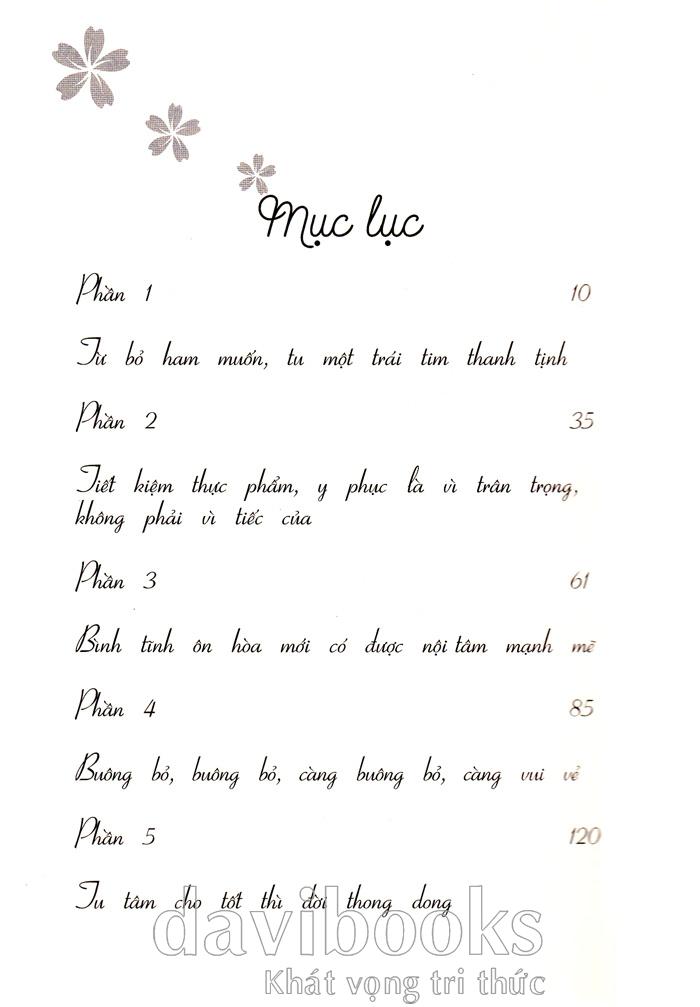 Mục lục
Phần 1 10
Từ bỏ ham muốn, tu một trái tim thanh tịnh
Phần 2 35
Tiết kiệm thực phẩm, y phục là vì trân trọng,
không phải vì tiếc của
Phần 3 61
Bình tĩnh ôn hòa mới có được nội tâm mạnh mẽ
Phần 4 85
Buông bỏ, buông bỏ, càng buông bỏ, càng vui vẻ
Phần 5 120
Tu tâm cho tốt thì đời thong dong
davibooks
Khát vọng tri thức